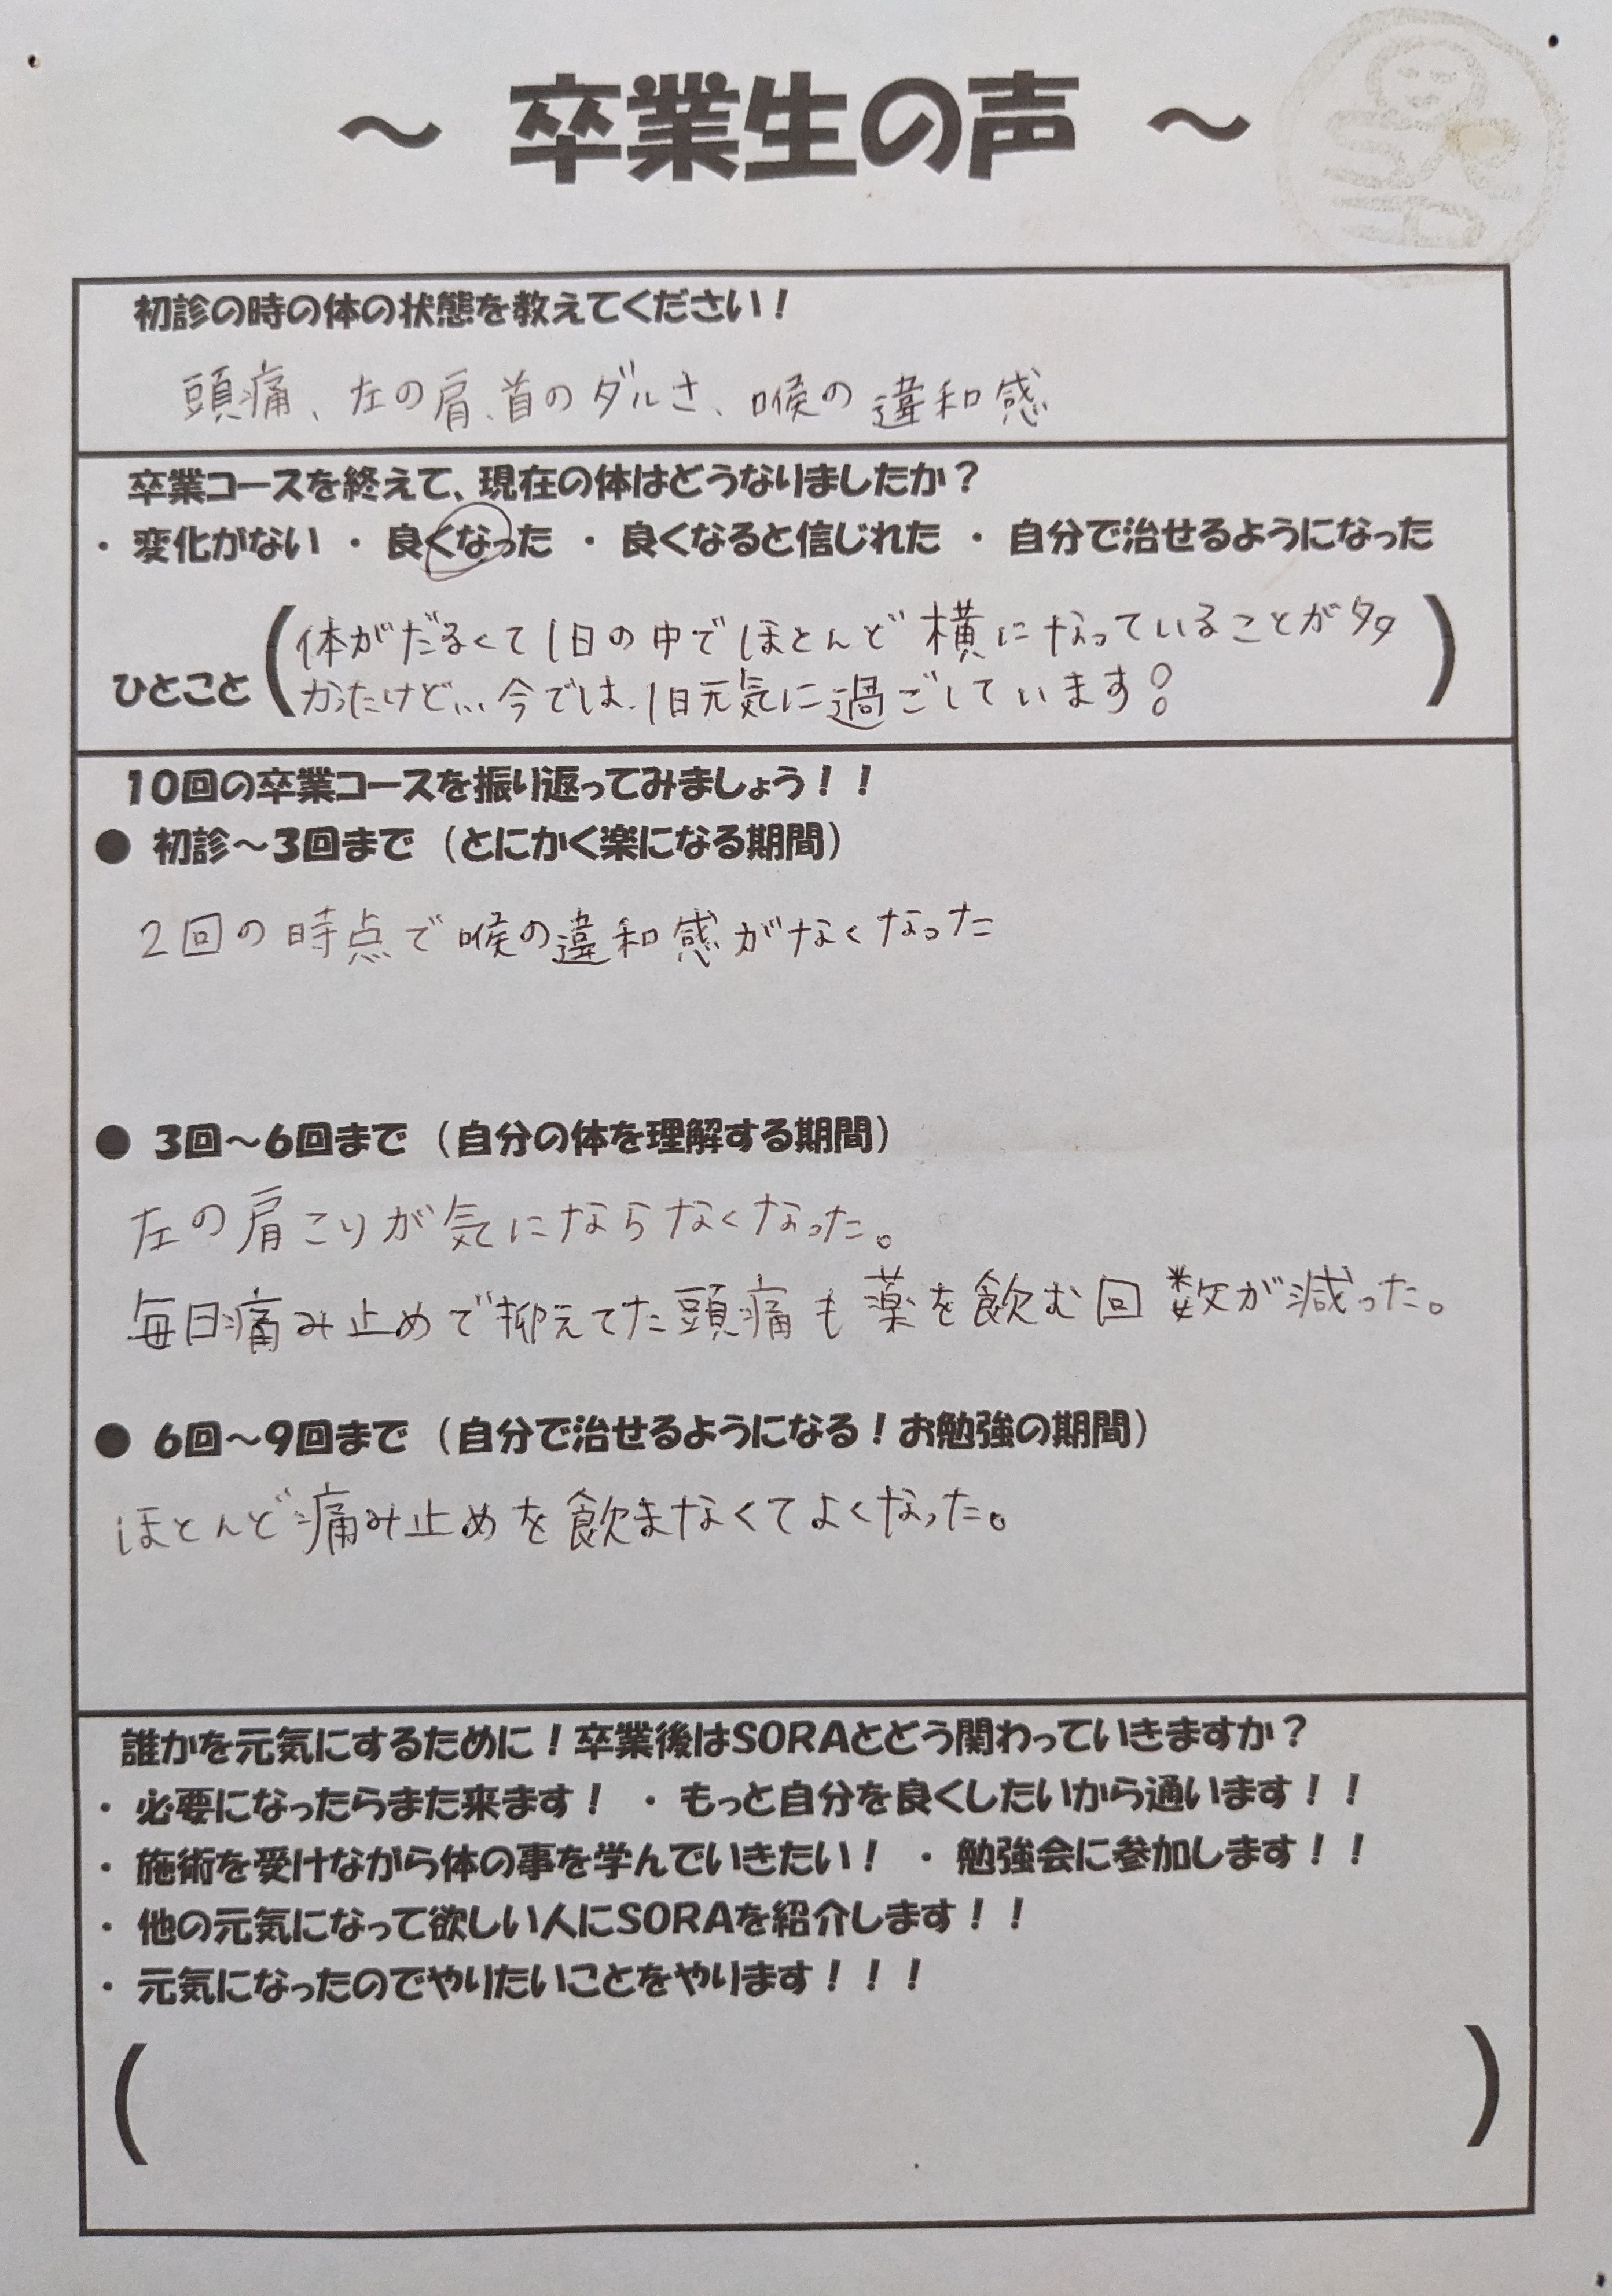 ～ 卒業生の声 ～
初診の時の体の状態を教えてください！
頭痛、左の肩、首のダルさ、喉の違和感
卒業コースを終えて、現在の体はどうなりましたか？
・ 変化がない ・ 良くなった ・ 良くなると信じれた ・ 自分で治せるようになった
(体がだるくて1日の中でほとんど横になっていることが多
ひとこと
かったけど… 今では、1日元気に過ごしています！)
10回の卒業コースを振り返ってみましょう！！
● 初診～3回まで（とにかく楽になる期間）
2回の時点で喉の違和感がなくなった
● 3回～6回まで（自分の体を理解する期間）
左の肩こりが気にならなくなった。
毎日痛み止めで抑えてた頭痛も薬を飲む回数が減った。
● 6回～9回まで（自分で治せるようになる！お勉強の期間）
ほとんど痛み止めを飲まなくてよくなった。
誰かを元気にするために！卒業後はSORAとどう関わっていきますか？
・ 必要になったらまた来ます！ ・ もっと自分を良くしたいから通います！！
・ 施術を受けながら体の事を学んでいきたい！ ・ 勉強会に参加します！！
・ 他の元気になって欲しい人にSORAを紹介します！！
・ 元気になったのでやりたいことをやります！！！
( )